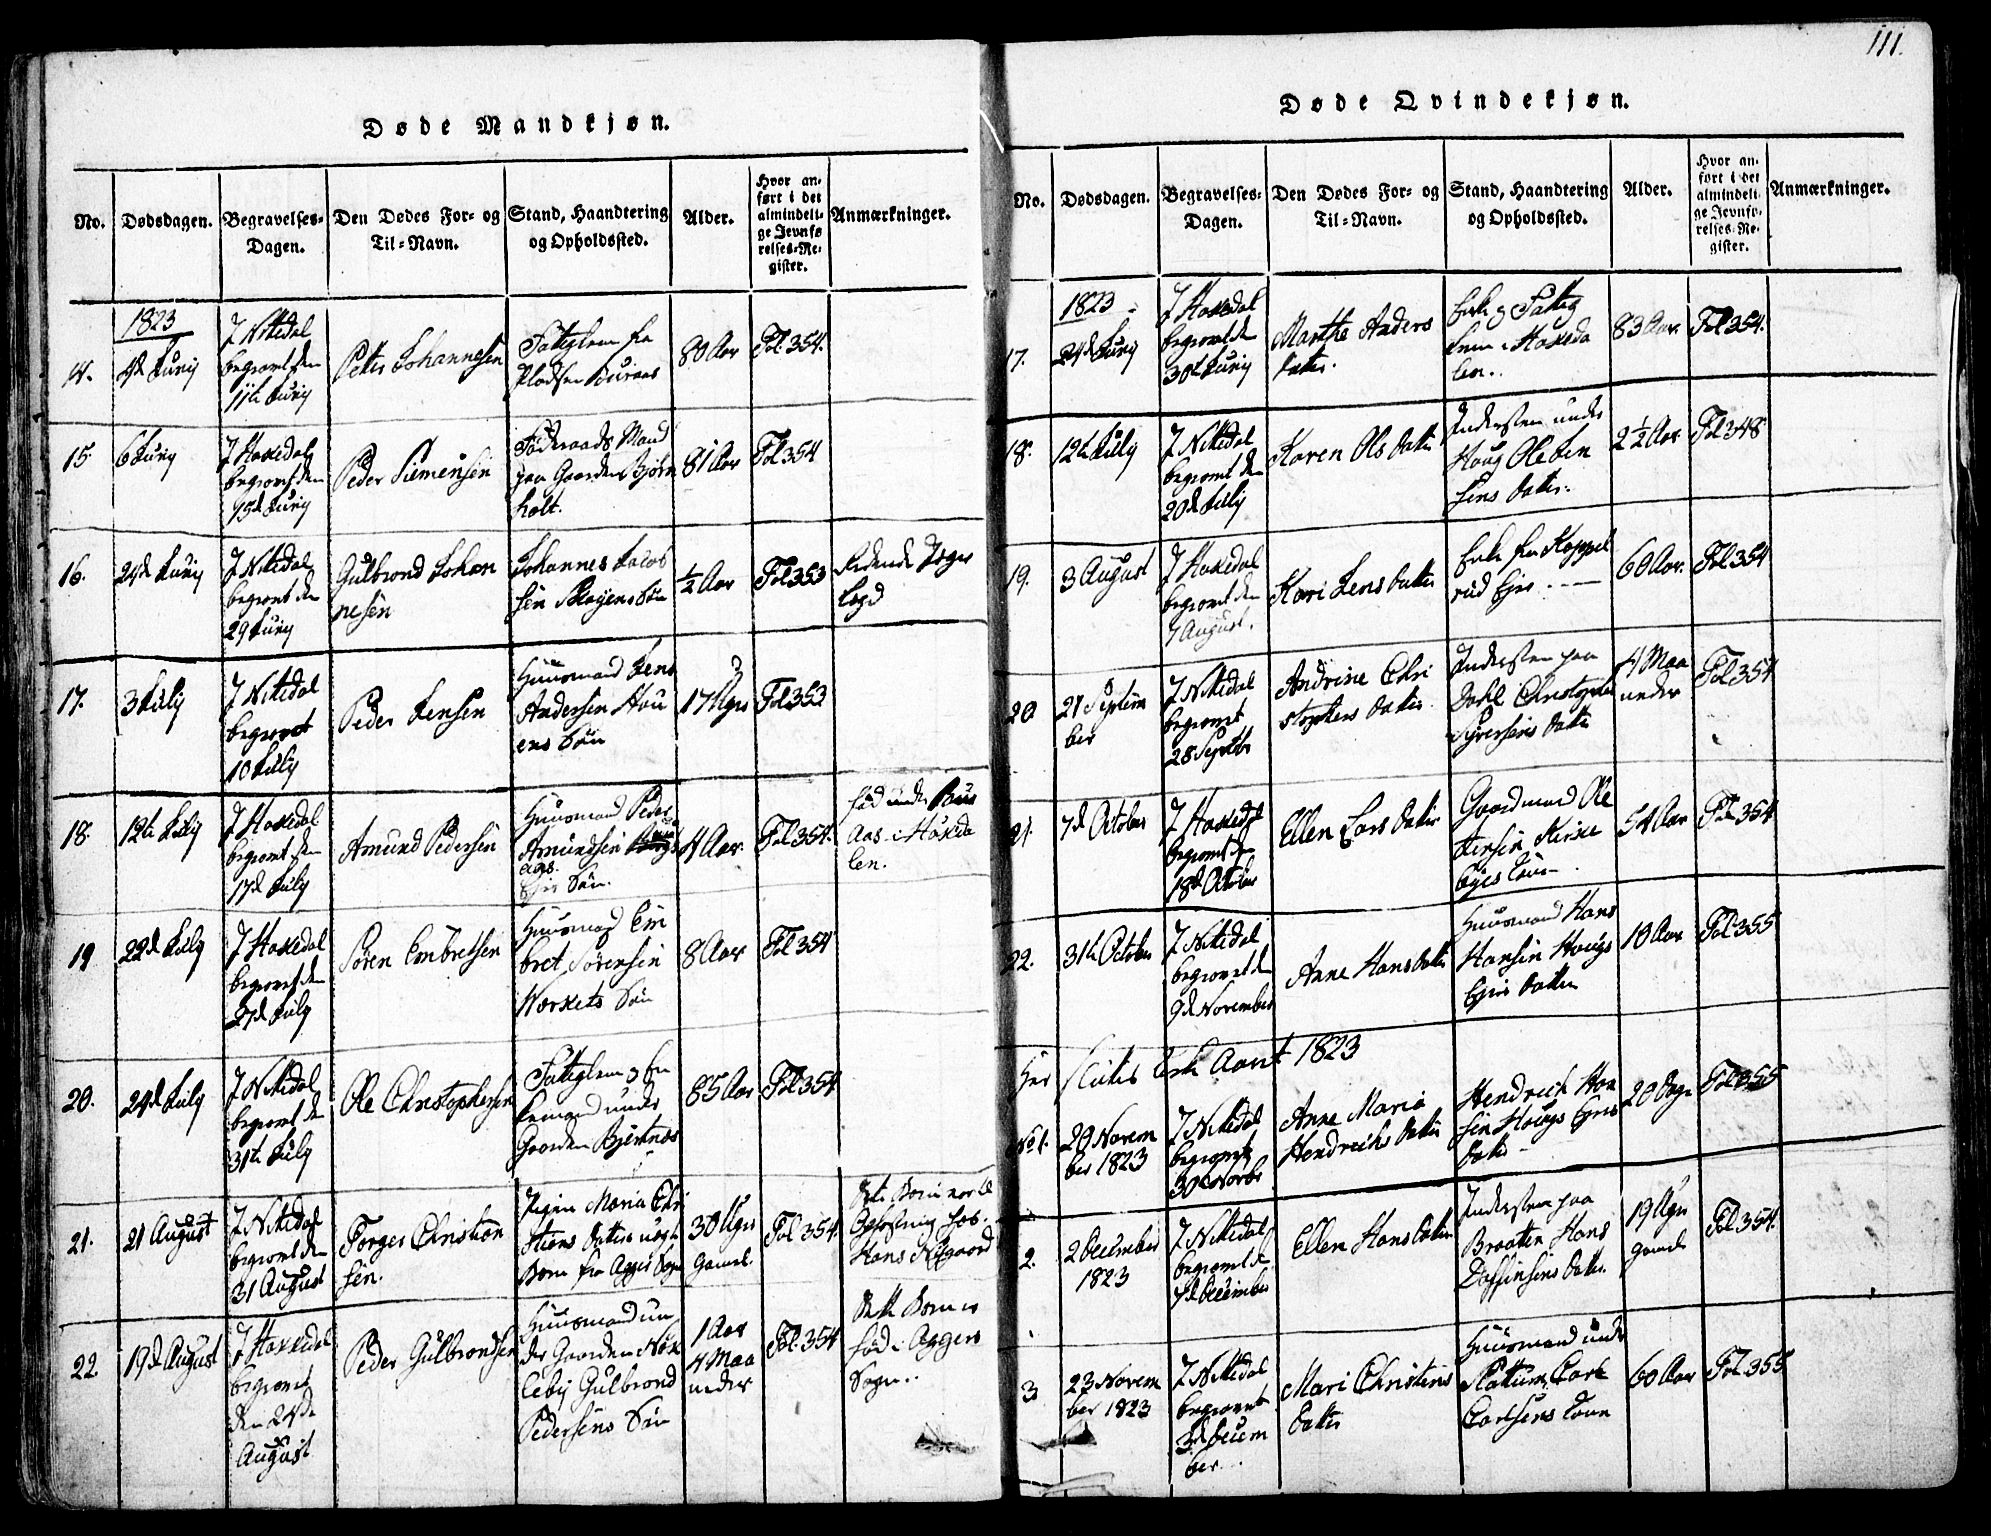 111.
Døde Mandkjøn.
No.
Dødsdagen.
Begravelses-
Dagen.
Den Dødes For- og
Til-Navn.
Stand, Haandtering
og Opholdssted.
Alder.
Hvor an-
ført i det
almindeli-
ge Jevnfø
relses-Re-
gister.
Anmærkninger.
1823
14.
I Nitedal
begravet den
11te Juny
Peter Johannesen
Fattiglem fra
Pladsen
80 Aar
Fol. 354.
15
6 Juny
I Hakedal
begravet den
15de Juny
Peder Simensen
Føderaads Mand
paa Gaarden Bjørn
holt.
81 Aar
Fol 354
16.
24de Juny
I Nitedal
begravet den
29 Juny
Gulbrand Johan
nesen
Johannes Jacob
sen Søn
½ Aar
Fol 353
17.
3 July
I Nitedal
begravet
10 July
Peder Jensen
Huusmand Jens
Andersen Hau
ens Søn
17 Uger
Fol 353
18
12te July
I Hakedal
begravet den
17de July
Amund Pedersen
Huusmand Peder
Amundsen
aas
Eyes Søn.
4 Aar.
Fol 354.
Fød under
Aas i Hakeda
len.
19
22de July
I Hakedal
begravet den
27de July
Søren Embretsen
Huusmand Em
bret Sørensen
Værkets Søn
8 Aar
Fol 354
20.
24de July
I Nitedal
begravet den
31te July
Ole Christophersen
Fattiglem og En
kemand under
Gaarden Bjertnæs
85 Aar
Fol 354
21.
21 August
I Nitedal
begravet den
31 August
Torger Christian
sen.
Pigen Maria Chri
stians Datter uægte
Barn fra Aggers Sogn
30 Uger
gamel.
Fol 354.
Dette Barn var til
Opfostring hos
Hans
22.
19de August
I Hakedal
begravet
den 24de
August
Peder Gulbrandsen
Huusmand un
der Gaarden Nøk
leby Gulbrand
Pedersens Søn
1 Aar
4 Maa
neder
Fol. 354
Dette Barn er
fød i Aggers
Sogn..
Døde Qvindekjøn.
No.
Dødsdagen.
Begravelses-
Dagen.
Den Dødes For- og
Til-Navn.
Stand, Haandtering
og Opholdssted.
Alder.
Hvor an-
ført i det
almindeli
ge Jevnfø-
relses-Re-
gister.
Anmærkninger.
1823
17.
24de Juny
I Hakedal
begravet den
30te Juny
Marthe Anders
Datter.
Enke og Fattig
lem i Hakeda
len.
83 Aar.
Fol 354.
18.
12te July
I Nitedal
begravet den
20de July
Karen Ols Datter
Indersten under
Haug Ole Jen
sens Datter.
2½ Aar
Fol 348
19.
3 August
I Hakedal
begravet den
7 August.
Kari Jens Datter
Enke fra Kappel
rud Eyer
60 Aar.
Fol 354
20
21 Septem
ber
I Nitedal
begravet
28 Septbr
Andrine Chri
stophers Datter
Indersten paa
Dahl Christopher
Syversens Datter
4 Maa
neder
Fol 354
21
7de October
I Hakedal
begravet den
18de October
Ellen Lars Datter
Gaardmand Ole
Jensen Kirke
byes Kone
54 Aar
Fol 354
22.
31te October
I Nitedal
begravet den
9de November
Anne Hans Datter
Huusmand Hans
Hansen Haugs
Eyes Datter
10 Aar
Fol 355
Her sluttes Kirke Aaret 1823
No 1.
20 Novem
ber 1823
I Nitedal
begravet
30 Novbr
Anne Maria
Hendrichs Datter
Hendrich Han
sen Haugs Eyes
Datter
20 Dage
Fol 355
2.
2 December
1823
I Nitedal
begravet d
7de December
Ellen Hans Datter
Indersten paa
Braaten Hans
Daffinsens Datter.
19 Uger
gamel
Fol 354.
3
23 Novem
ber 1823
I Nitedal
begravet
3de Decem
ber
Mari Christens
Datter
Huusmand under
Slattum Carl
Carlsens Kone
60 Aar
Fol 355